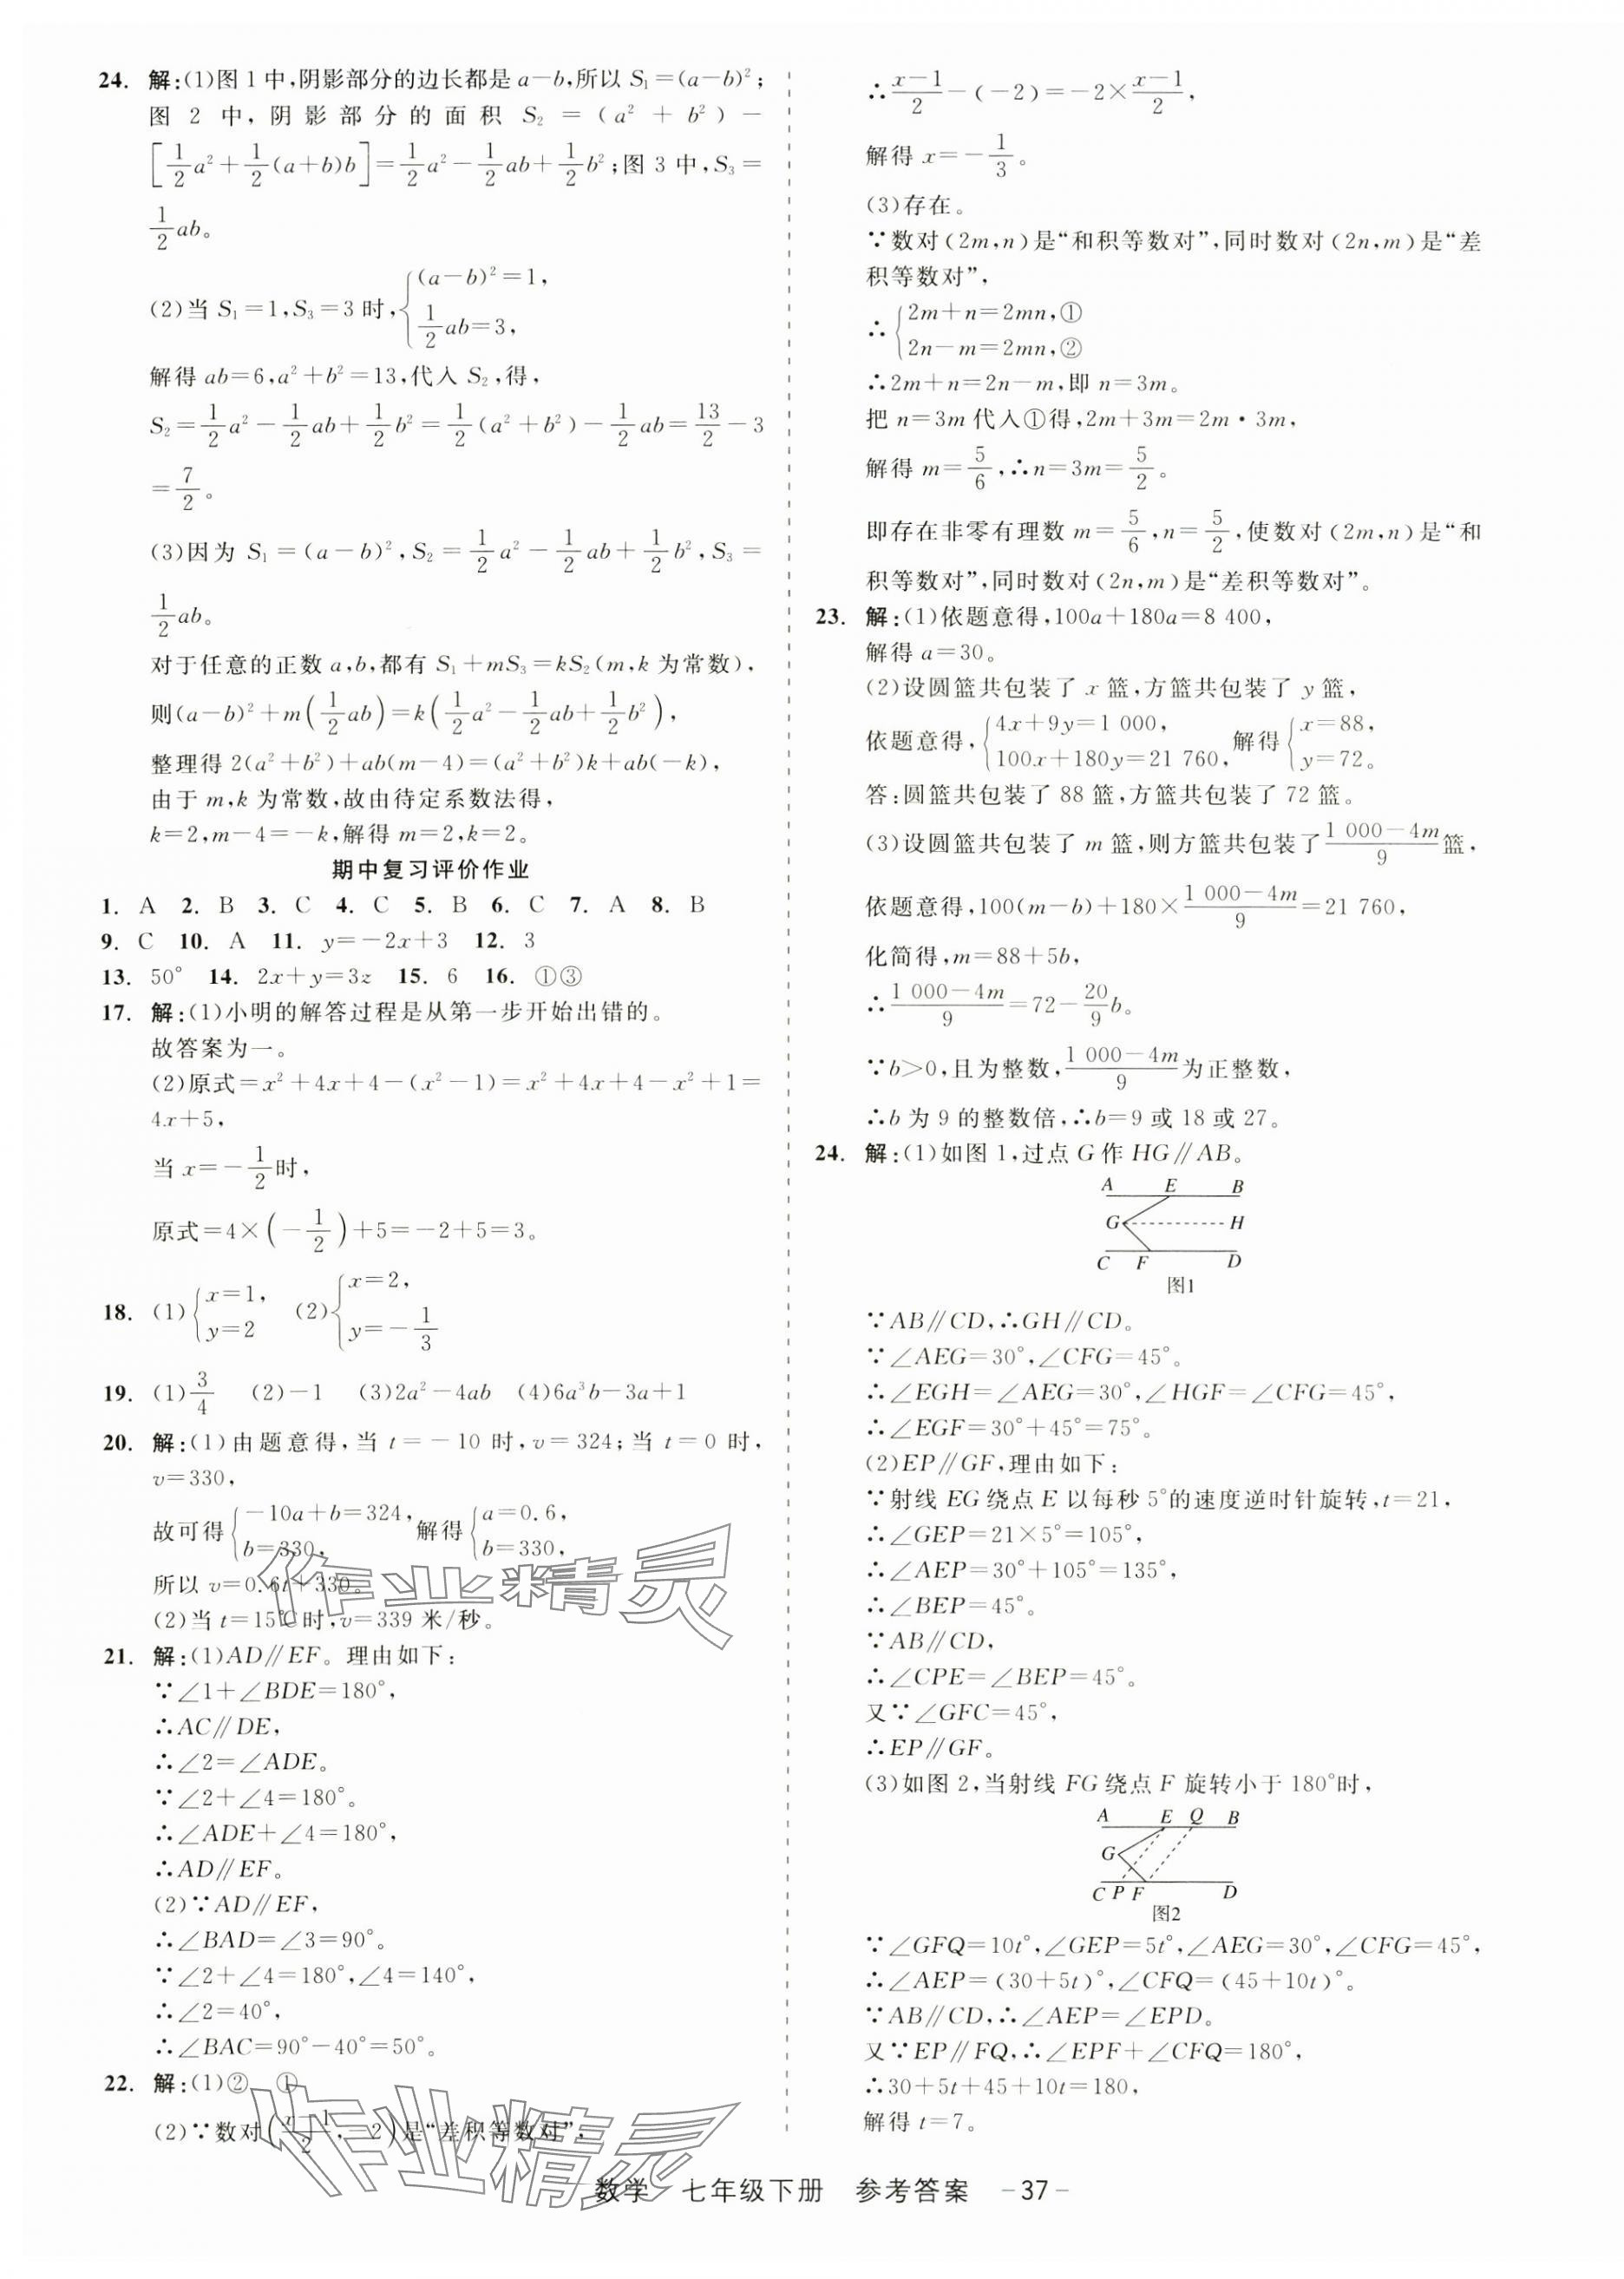 24. 解:(1)图1中,阴影部分的边长都是a-b,所以S₁=(a-b)²;
图2中,阴影部分的面积S₂=(a²+b²)-
[1/2a²+1/2(a+b)b]=1/2a²-1/2ab+1/2b²;图3中,S₃=
1/2ab。
(2)当S₁=1,S₃=3时,{(a-b)²=1, 1/2ab=3,
解得ab=6,a²+b²=13,代入S₂,得,
S₂=1/2a²-1/2ab+1/2b²=1/2(a²+b²)-1/2ab=13/2-3
=7/2。
(3)因为S₁=(a-b)²,S₂=1/2a²-1/2ab+1/2b²,S₃=
1/2ab。
对于任意的正数a,b,都有S₁+mS₃=kS₂(m,k为常数),
则(a-b)²+m(1/2ab)=k(1/2a²-1/2ab+1/2b²),
整理得2(a²+b²)+ab(m-4)=(a²+b²)k+ab(-k),
由于m,k为常数,故由待定系数法得,
k=2,m-4=-k,解得m=2,k=2。
期中复习评价作业
1. A 2. B 3. C 4. C 5. B 6. C 7. A 8. B
9. C 10. A 11. y=-2x+3 12. 3
13. 50° 14. 2x+y=3z 15. 6 16. ①③
17. 解:(1)小明的解答过程是从第一步开始出错的。
故答案为一。
(2)原式=x²+4x+4-(x²-1)=x²+4x+4-x²+1=
4x+5,
当x=-1/2时,
原式=4×(-1/2)+5=-2+5=3。
18. (1){x=1, y=2 (2){x=2, y=-1/3
19. (1)3/4 (2)-1 (3)2a²-4ab (4)6a³b-3a+1
20. 解:(1)由题意得,当t=-10时,v=324;当t=0时,
v=330,
故可得{-10a+b=324, b=330, 解得{a=0.6, b=330,
所以v=0.6t+330。
(2)当t=15℃时,v=339米/秒。
21. 解:(1)AD∥EF。理由如下:
∵∠1+∠BDE=180°,
∴AC∥DE,
∴∠2=∠ADE。
∵∠2+∠4=180°。
∴∠ADE+∠4=180°,
∴AD∥EF。
(2)∵AD∥EF,
∴∠BAD=∠3=90°。
∵∠2+∠4=180°,∠4=140°,
∴∠2=40°,
∴∠BAC=90°-40°=50°。
22. 解:(1)② ①
(2)∵数对(x-1/2,-2)是“差积等数对”,
∴x-1/2-(-2)=-2×x-1/2,
解得x=-1/3。
(3)存在。
∵数对(2m,n)是“和积等数对”,同时数对(2n,m)是“差
积等数对”,
∴{2m+n=2mn,① 2n-m=2mn,②
∴2m+n=2n-m,即n=3m。
把n=3m代入①得,2m+3m=2m·3m,
解得m=5/6,∴n=3m=5/2。
即存在非零有理数m=5/6,n=5/2,使数对(2m,n)是“和
积等数对”,同时数对(2n,m)是“差积等数对”。
23. 解:(1)依题意得,100a+180a=8 400,
解得a=30。
(2)设圆篮共包装了x篮,方篮共包装了y篮,
依题意得,{4x+9y=1 000, 100x+180y=21 760, 解得{x=88, y=72。
答:圆篮共包装了88篮,方篮共包装了72篮。
(3)设圆篮共包装了m篮,则方篮共包装了1 000-4m/9篮,
依题意得,100(m-b)+180×1 000-4m/9=21 760,
化简得,m=88+5b,
∴1 000-4m/9=72-20/9b。
∵b>0,且为整数,1 000-4m/9为正整数,
∴b为9的整数倍,∴b=9或18或27。
24. 解:(1)如图1,过点G作HG∥AB。
A E B
G H
C F D
图1
∵AB∥CD,∴GH∥CD。
∵∠AEG=30°,∠CFG=45°。
∴∠EGH=∠AEG=30°,∠HGF=∠CFG=45°,
∴∠EGF=30°+45°=75°。
(2)EP∥GF,理由如下:
∵射线EG绕点E以每秒5°的速度逆时针旋转,t=21,
∴∠GEP=21×5°=105°,
∴∠AEP=30°+105°=135°,
∴∠BEP=45°。
∵AB∥CD,
∴∠CPE=∠BEP=45°。
又∵∠GFC=45°,
∴EP∥GF。
(3)如图2,当射线FG绕点F旋转小于180°时,
A E Q B
G
C P F D
图2
∵∠GFQ=10t°,∠GEP=5t°,∠AEG=30°,∠CFG=45°,
∴∠AEP=(30+5t)°,∠CFQ=(45+10t)°。
∵AB∥CD,∴∠AEP=∠EPD。
又∵EP∥FQ,∴∠EPF+∠CFQ=180°,
∴30+5t+45+10t=180,
解得t=7。
作业精灵
作业精灵
数学 七年级下册 参考答案 -37-